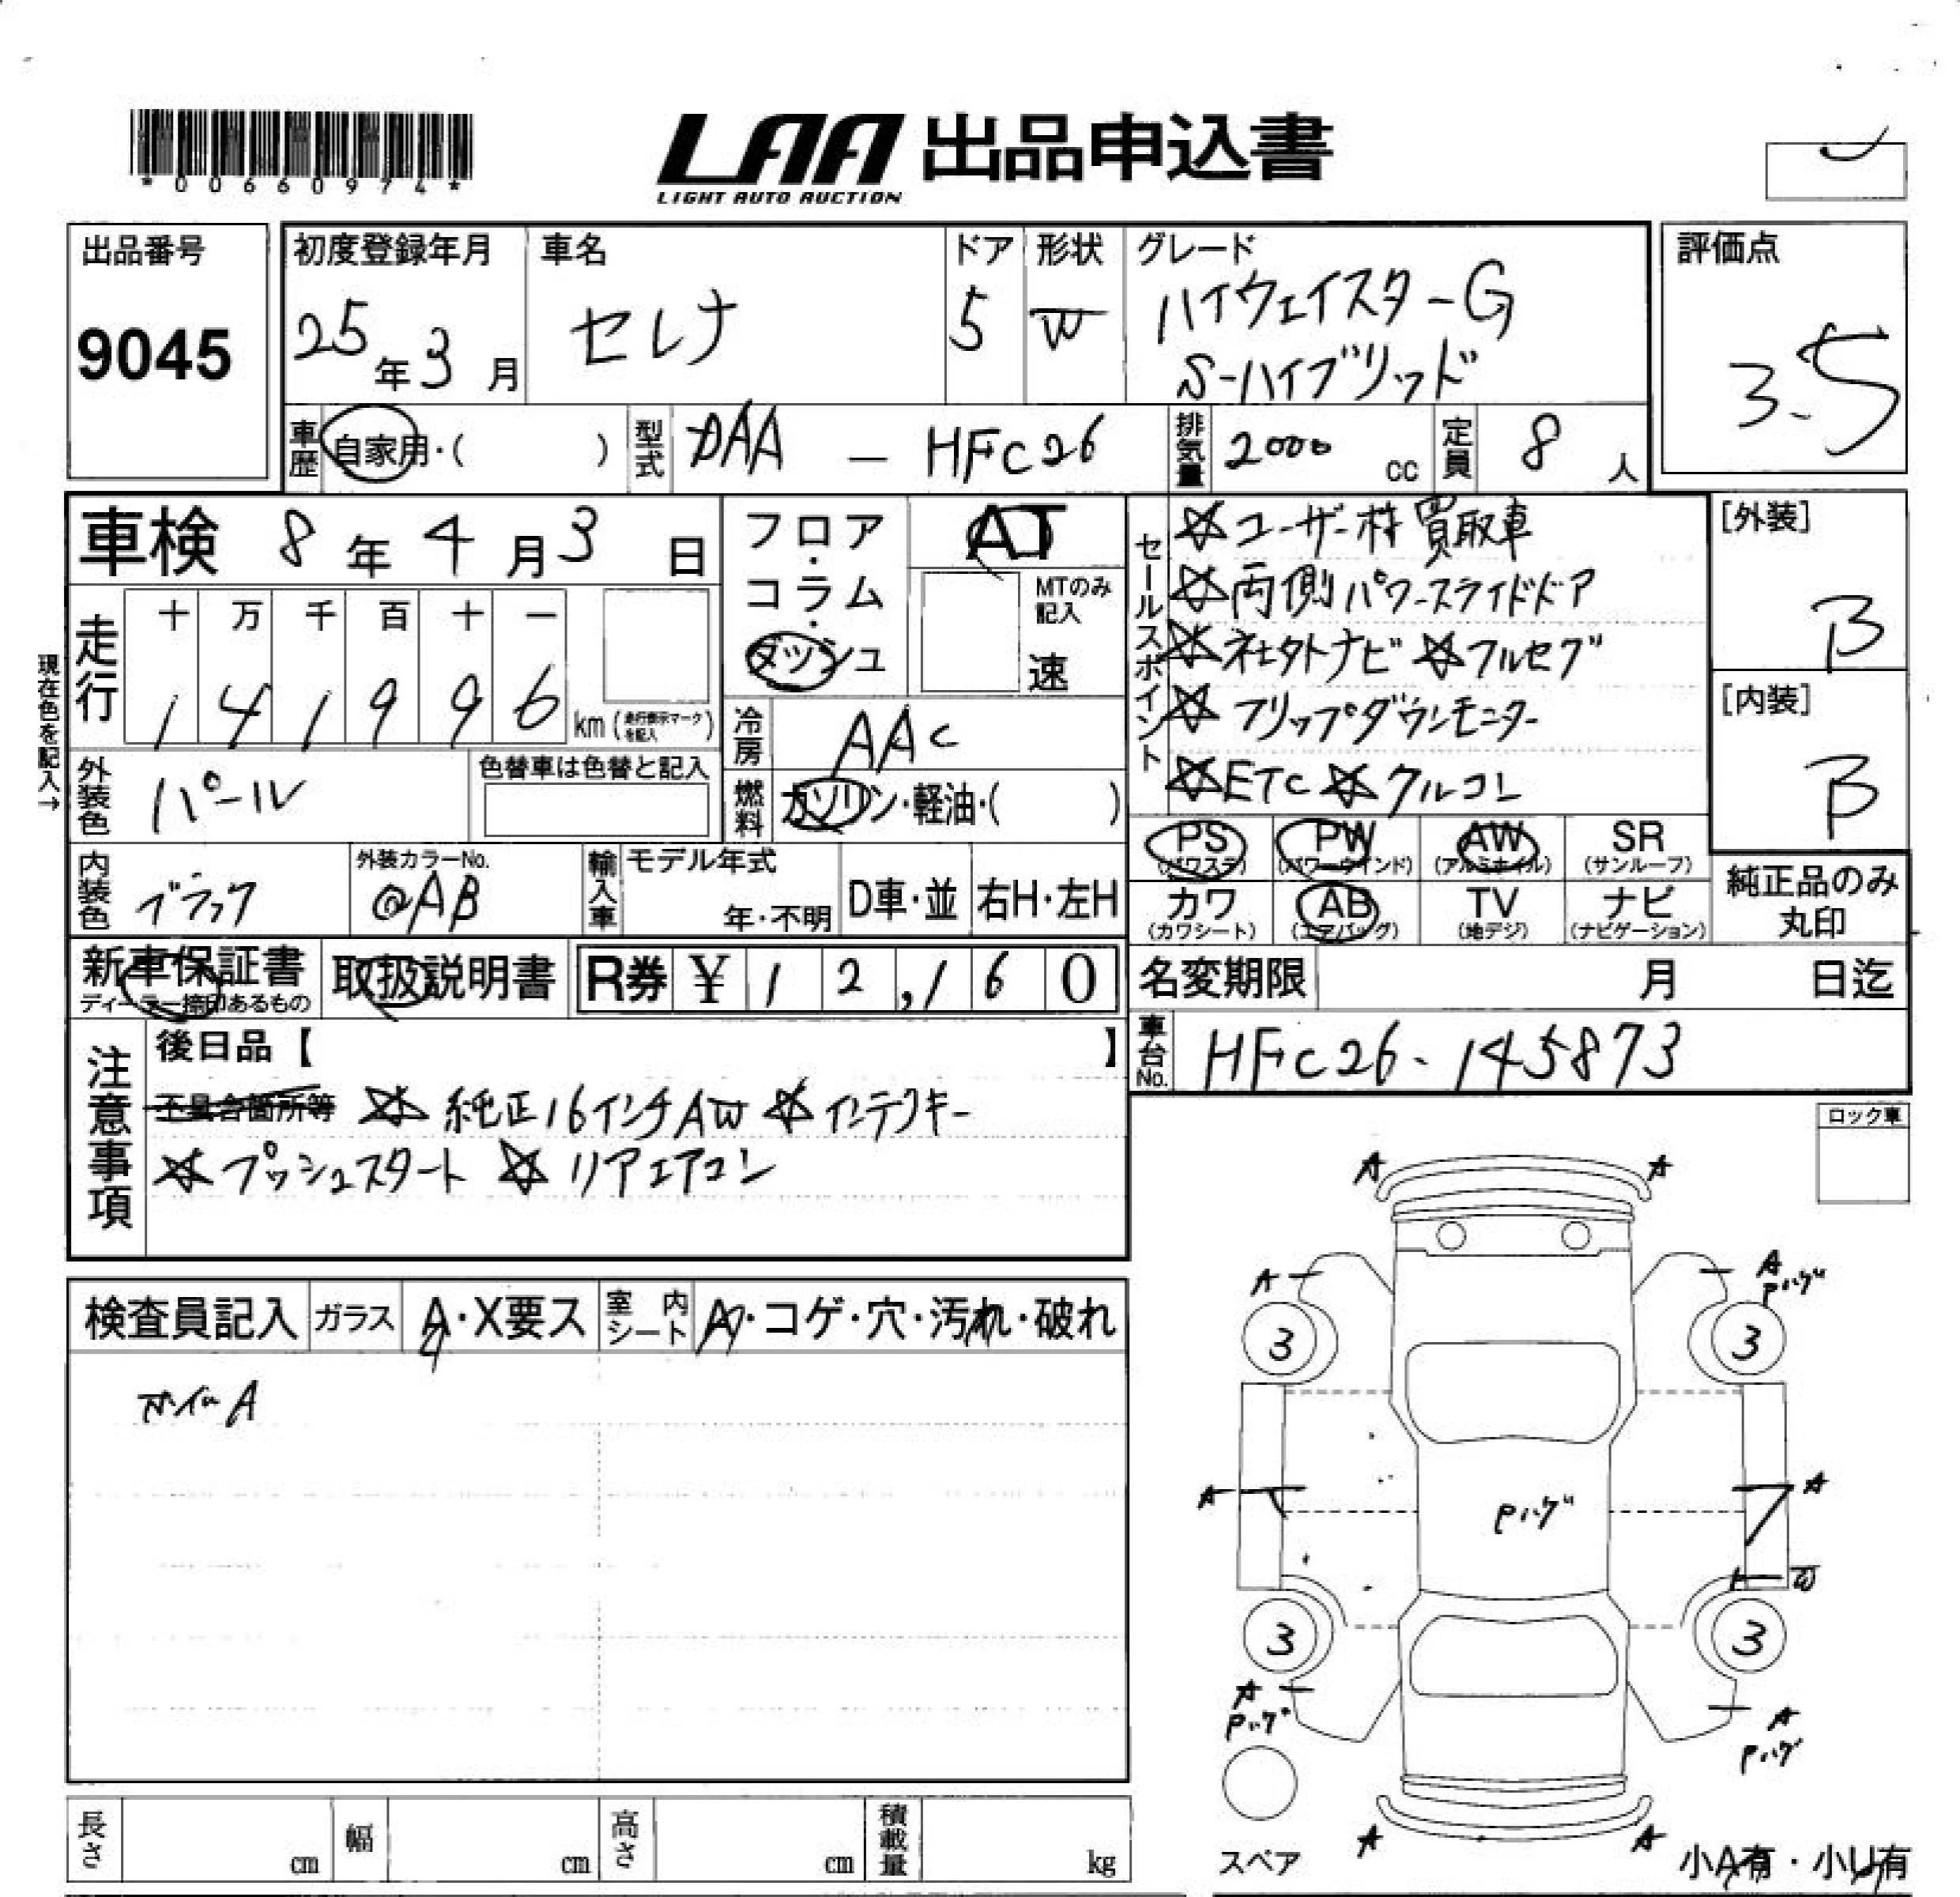 *00660974*
LAA 出品申込書
LIGHT AUTO AUCTION
出品番号
9045
初度登録年月
25年3月
車名
セレナ
ドア
5
形状
W
グレード
ハイウェイスターG
S-ハイブリッド
評価点
3.5
車歴 自家用・( )
型式 DAA - HFC26
排気量 2000 cc
定員 8 人
車検 8年4月3日
走行
十 万 千 百 十 一
1 4 1 9 9 6 km (走行表示マークを記入)
現在色を記入→
フロア・コラム・ダッシュ
AT
MTのみ記入
速
冷房 AAC
燃料 ガソリン・軽油・( )
外装色 パール
色替車は色替と記入
内装色 ブラック
外装カラーNo.
@AB
輸入車
モデル年式
年・不明
D車・並
右H・左H
セールスポイント
☆ユーザー様買取車
☆両側パワースライドドア
☆社外ナビ ☆フルセグ
☆フリップダウンモニター
☆ETC ☆クルコン
[外装]
B
[内装]
B
PS (パワステ)
PW (パワーウインド)
AW (アルミホイル)
SR (サンルーフ)
カワ (カワシート)
AB (エアバッグ)
TV (地デジ)
ナビ (ナビゲーション)
純正品のみ
丸印
新車保証書
ディーラー捺印あるもの
取扱説明書
R券 ¥12,160
名変期限 月 日迄
車台No. HFC26-145873
注意事項
後日品【 】
不具合箇所等 ☆純正16インチAW ☆インテリキー
☆プッシュスタート ☆リアエアコン
ロック車
検査員記入
ガラス A・X要ス
室内シート A・コゲ・穴・汚れ・破れ
ホイールA
A A
A A
Pハゲ
3 3
A A
Pハゲ
W
3 3
A
Pハゲ
A
Pハゲ
A A
スペア
小A有・小U有
長さ cm
幅 cm
高さ cm
積載量 kg